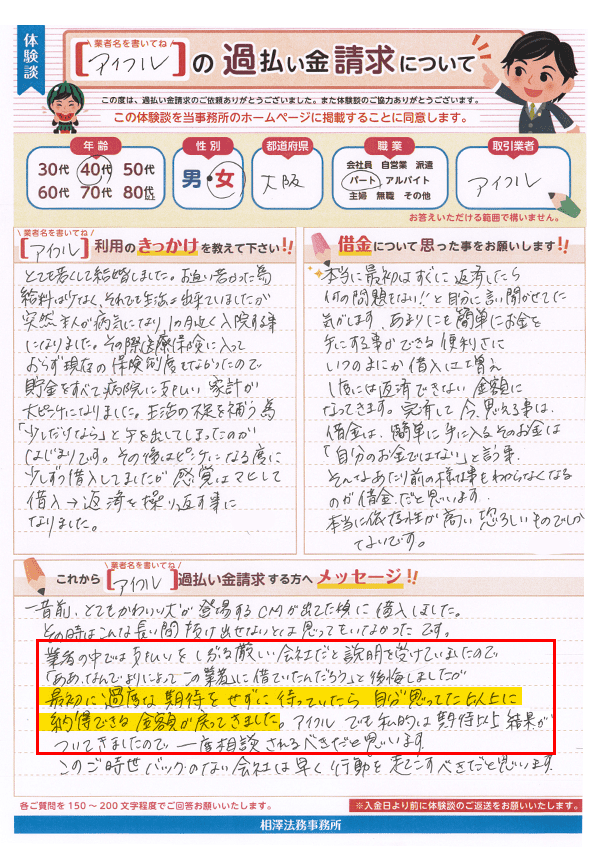 体験談
業者名を書いてね
[アイフル]の過払い金請求について
この度は、過払い金請求のご依頼ありがとうございました。また体験談のご協力ありがとうございます。
この体験談を当事務所のホームページに掲載することに同意します。
年齢
30代 40代 50代
60代 70代 80代以上
性別
男・女
都道府県
大阪
職業
会社員 自営業 派遣
パート アルバイト
主婦 無職 その他
取引業者
アイフル
お答えいただける範囲で構いません。
業者名を書いてね
[アイフル]利用のきっかけを教えて下さい!!
とても若くして結婚しました。お互い若かった為
給料は少なく、それでも生活は出来ていましたが
突然主人が病気になり1カ月近く入院する事
になりました。その際医療保険に入って
おらず現在の保険制度もなかったので
貯金をすべて病院に支払い家計が
大ピンチになりました。生活の足を補う為
「少しだけなら」と手を出してしまったのが
はじまりです。その後はピンチになる度に
少しずつ借入してましたが感覚はマヒして
借入→返済を操り返す事に
なりました。
借金について思った事をお願いします!!
本当に最初はすぐに返済したら
何の問題もない!!と自分に言い聞かせてた
気がします。あまりにも簡単にお金を
手にする事ができる便利さに
いつのまにか借入は増え
1度には返済できない金額に
なってきます。完済して今、思える事は
借金は、簡単に手に入るそのお金は
「自分のお金ではない」と言う事
そんなあたり前の様な事もわからなくなる
のが借金だと思います。
本当に依存性が高い恐ろしいものでしか
ないです。
業者名を書いてね
これから[アイフル]過払い金請求する方へメッセージ!!
一昔前、とてもかわいい犬が登場するCMが出てた頃に借入しました。
その時はこんな長い間抜け出せないとは思ってもいなかったです。
業者の中では支払いをしぶる厳しい会社だと説明を受けていましたので
「ああ、なんでよりによってこの業者に借りていたんだろう」と後悔しましたが
最初に過度な期待をせずに待っていたら自分が思ってた以上に
納得できる金額が戻ってきました。アイフルでも私的には期待以上結果が
ついてきましたので一度相談されるべきだと思います
このご時世バックのない会社は早く行動を起こすべきだと思います
各ご質問を150～200文字程度でご回答お願いいたします。
※入金日より前に体験談のご返送をお願いいたします。
相澤法務事務所